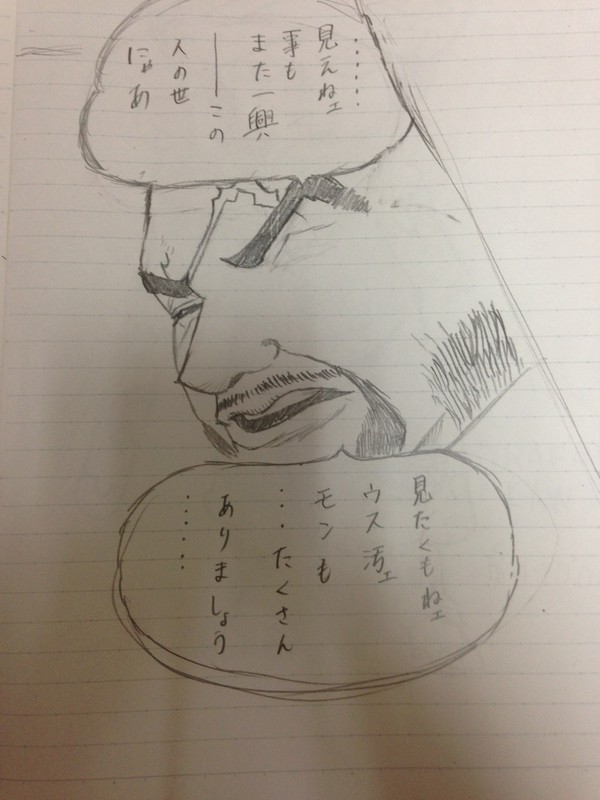 ……
見えねェ
事も
また一興
――この
人の世
にゃあ
見たくもねェ
ウス汚ェ
モンも
…たくさん
ありましょう
……